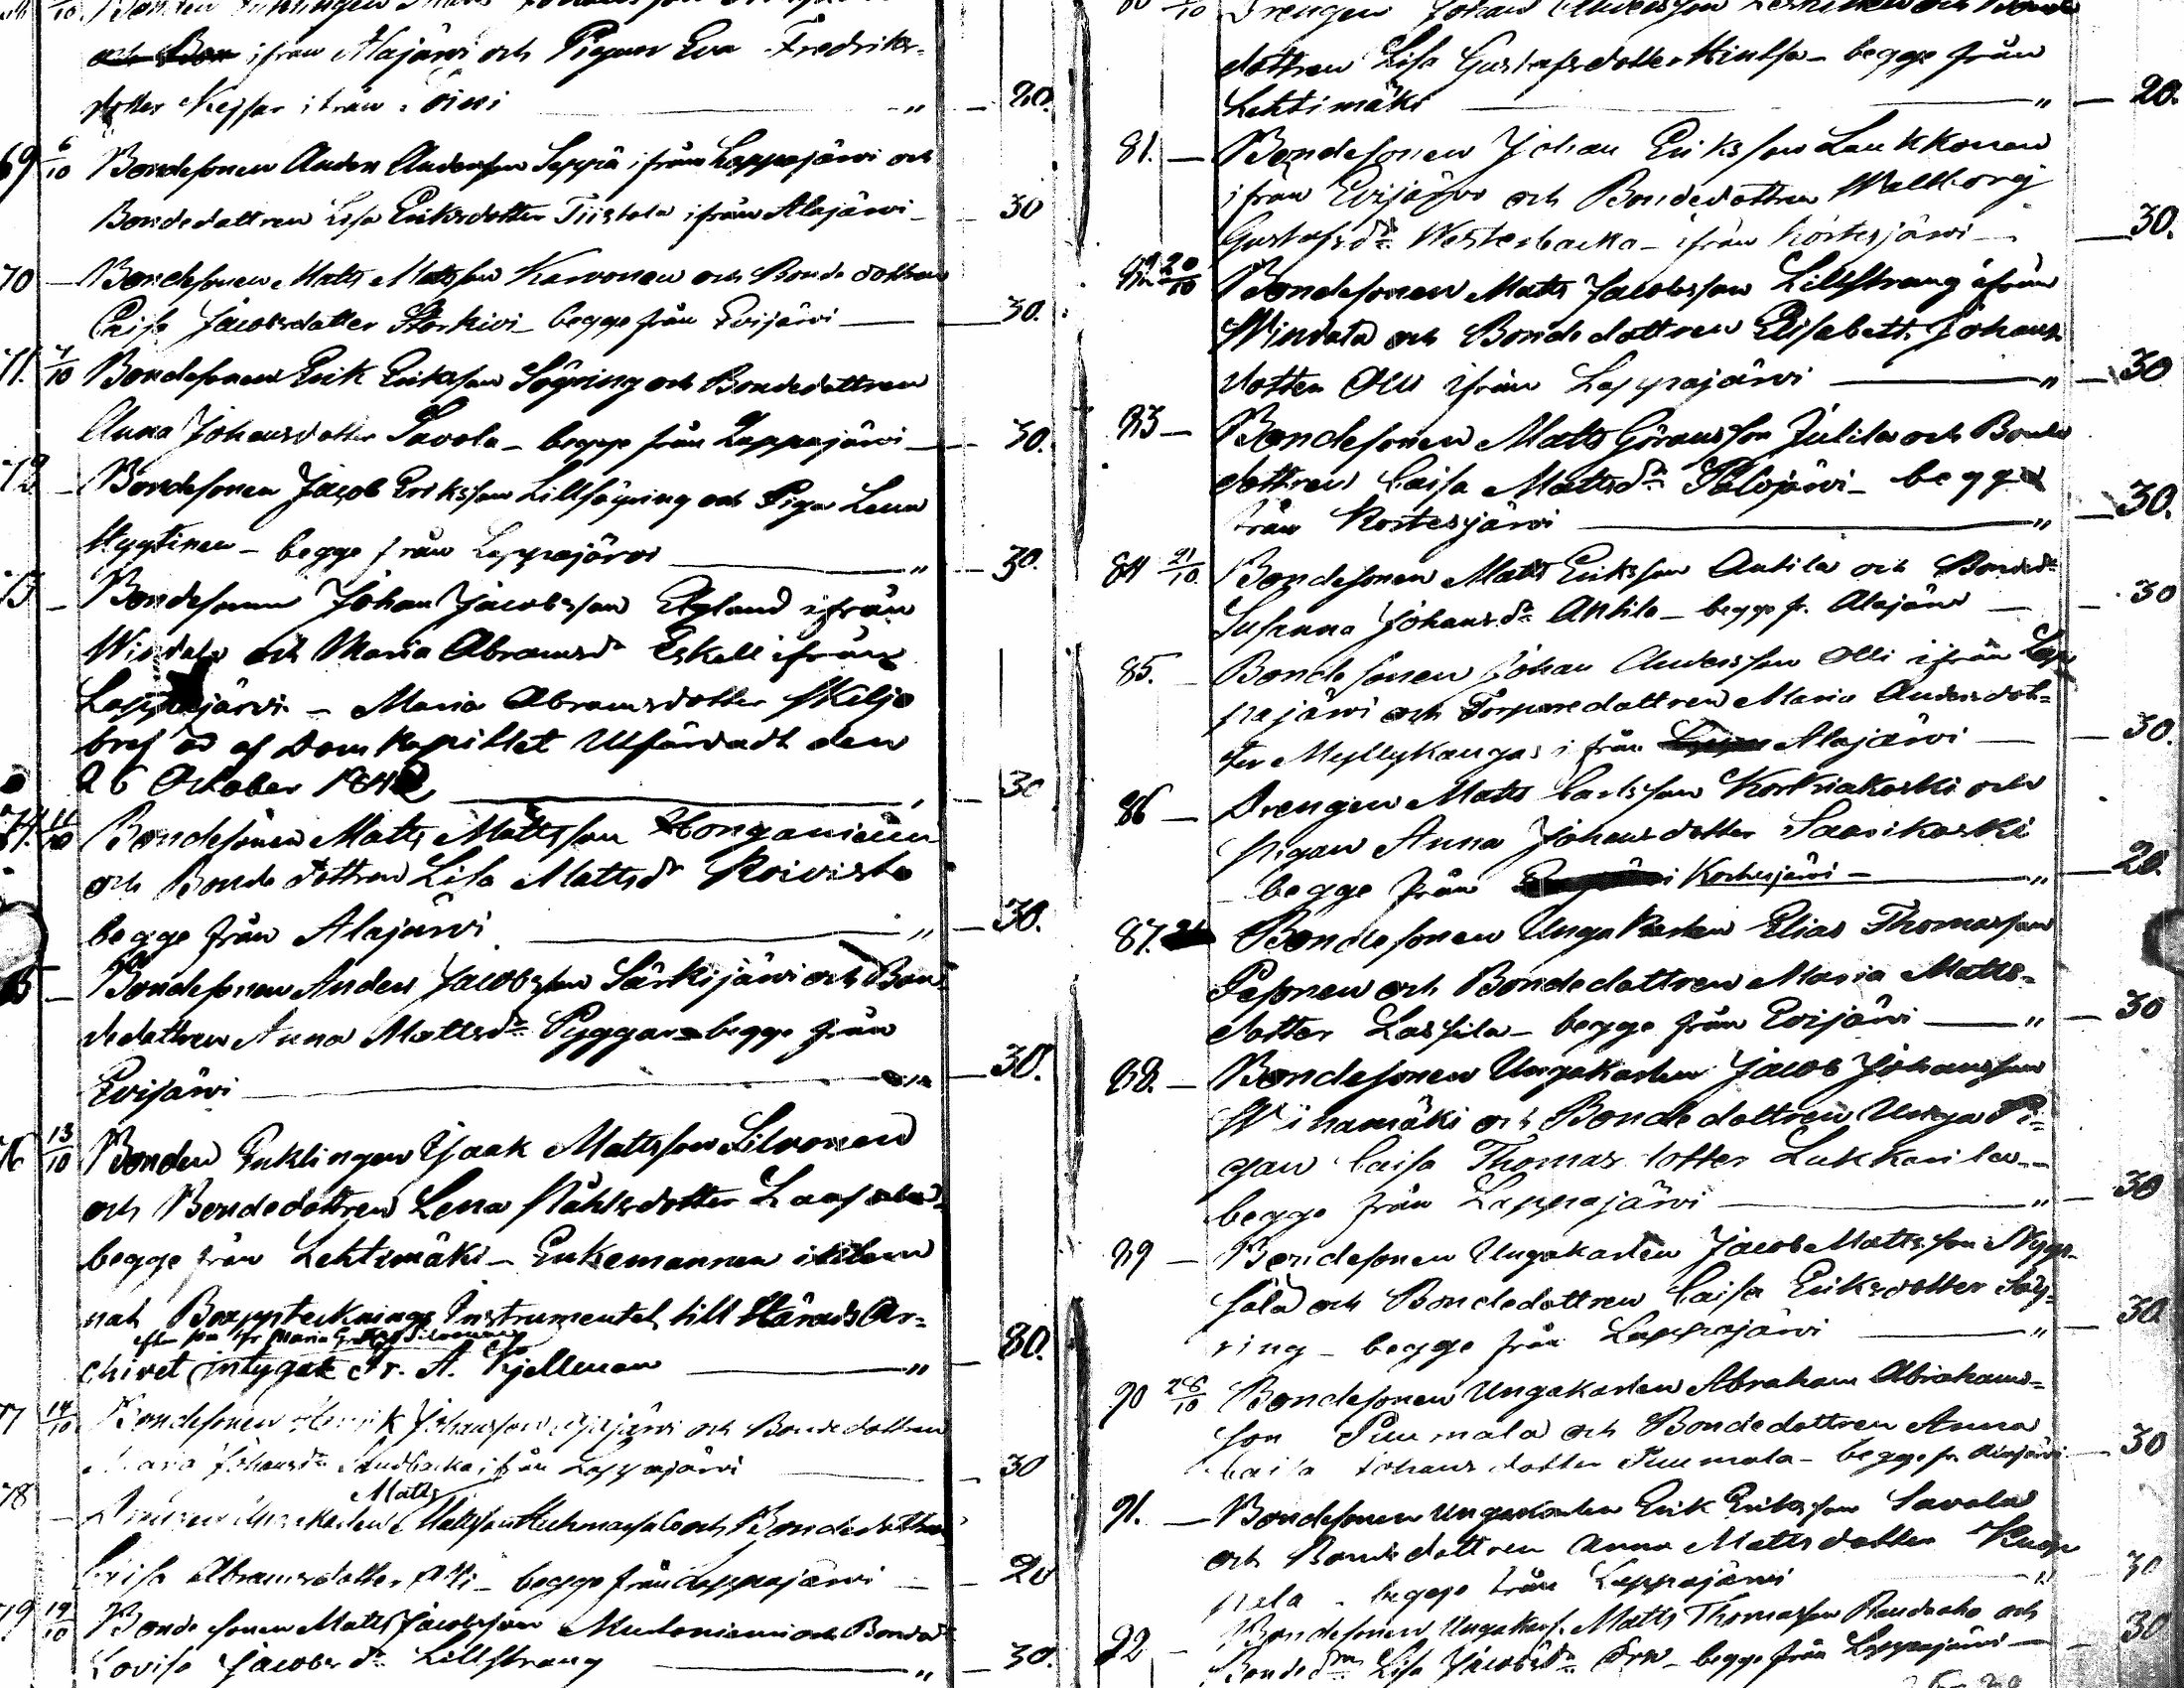 ifrån Alajärvi och Pigan Eva Fredriks-
dotter Kejsar ifrån Soini " — 20.
69 6/10 Bondesonen Anders Andersson Seppä ifrån Lappajärvi och
Bondedottren Lisa Eriksdotter Tiistola ifrån Alajärvi — 30
70 — Bondesonen Matts Mattsson Karvonen och Bonde dottren
Caisa Jacobsdotter Storkivi — begge från Evijärvi — 30.
71. 7/10 Bondesonen Erik Eriksson Sögning och Bondedottren
Anna Johansdotter Savola — begge från Lappajärvi — 30.
72 — Bondesonen Jacob Eriksson Lillsögning och Pigan Lena
Hyytinen — begge från Lappajärvi " — 30.
73 — Bondesonen Johan Jacobsson Åglund ifrån
Windala och Maria Abramsdr Eskell ifrån
Lappajärvi — Maria Abramsdotter skilje
bref är af Dom Kapitlet Utfärdadt den
26 October 1842 — 30
74. 11/10 Bondesonen Matts Mattsson Honganiemi
och Bonde dottren Lisa Mattsdr Koivisto
begge från Alajärvi " — 30.
75 — Bondesonen Anders Jacobsson Särkijärvi och Bon-
dedottren Anna Mattsdr Pyggar — begge från
Evijärvi " — 30.
76 13/10 Bonden Enklingen Isaak Mattsson Silvonen
och Bondedottren Lena Ståhlsdotter
begge från Lehtimäki — Enkemannen inlem
nat Bouppteknings Instrumentet till Härads Ar-
chivet intygat Fr. A. Kjellman " — 80.
77 14/10 Bondesonen Henrik Johansson och Bondedottren
Maria Johansdr Sandbacka ifrån Lappajärvi — 30
78 Matts
— Ungekarlen Mattsson och Bondedottren
Caisa Abramsdotter — begge från Lappajärvi — 20
79 19/10 Bondesonen Matts Jacobsson Muloniemi och Bonded
Lovisa Jacobsdr Lillstrang " — 30.
80 /10 Drengen Johan Andersson och Bonde
dottren Lisa Gustafsdotter Hiulsa — begge från
Lehtimäki " — 20.
81. — Bondesonen Johan Eriksson Laukkonen
ifrån Evijärvi och Bondedottren Wallborg
Gustafsdr Westerbacka — ifrån Kortesjärvi — 30.
82 20/10 Bondesonen Matts Jacobsson Lillstrang ifrån
Windala och Bonde dottren Elisabeth Johans
dotter Olli ifrån Lappajärvi " — 30
83 — Bondesonen Matts Göransson Julila och Bonde
dottren Caisa Mattsdr Palojärvi — begge
från Kortesjärvi " — 30.
84 21/10 Bondesonen Matts Eriksson Antila och Bondedr
Susanna Johansdr Antila — begge fr. Alajärvi — 30
85. — Bonde sonen Johan Andersson Olli ifrån Lap
pajärvi och Torparedottren Maria Andersdot-
ter Myllykangas ifrån Alajärvi — 30.
86 — Drengen Matts Carlsson Korkiakoski och
pigan Anna Johansdotter Saarikoski
begge från Kortesjärvi — " — 20.
87. Bondesonen Ungakarlen Elias Thomasson
Pesonen och Bondedottren Maria Matts-
dotter Lassila — begge från Evijärvi " — 30
88. — Bondesonen Ungakarlen Jacob Johansson
Wiinamäki och Bondedottren Unga Pi-
gan Caisa Thomas dotter Lukkarila —
begge från Lappajärvi " — 30
89 — Bondesonen Ungakarlen Jacob Mattsson Nygg-
såla och Bondedottren Caisa Eriksdotter Sög-
ning — begge från Lappajärvi " — 30
90 28/10 Bondesonen Ungakarlen Abraham Abrahams-
son Puumala och Bondedottren Anna
Caisa Johansdotter Puumala — begge fr. Alajärvi — 30
91. — Bondesonen Ungakarlen Erik Eriksson Savola
och Bondedottren Anna Mattsdotter Kuop
pala — begge från Lappajärvi " 30
92 — Bondesonen Ungakarl. Matts Thomasson Raudaho och
Bondedn Lisa Jacobsdr — begge från Lappajärvi — 30